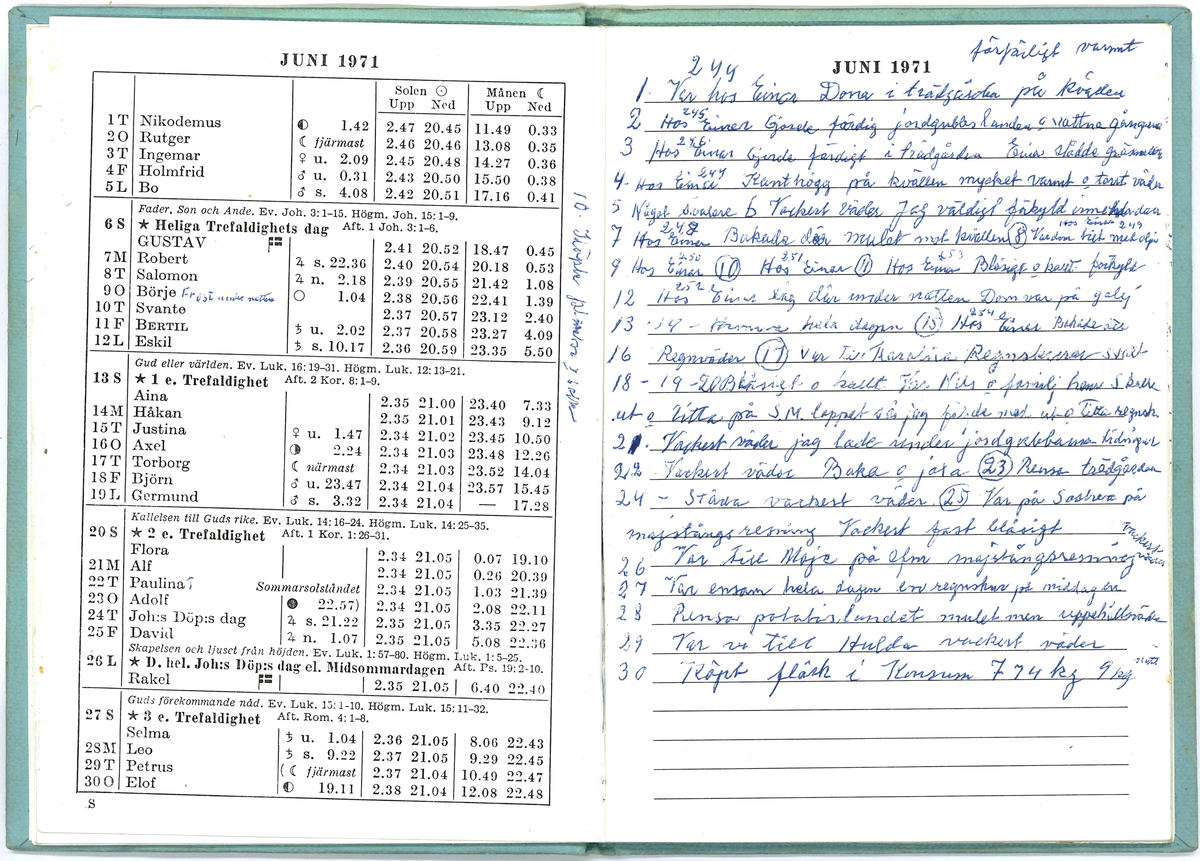 JUNI 1971
Solen ☉ Månen ☾
Upp Ned Upp Ned
1 T Nikodemus ◐ 1.42 2.47 20.45 11.49 0.33
2 O Rutger ☾ fjärmast 2.46 20.46 13.08 0.35
3 T Ingemar ♀ u. 2.09 2.45 20.48 14.27 0.36
4 F Holmfrid ♂ u. 0.31 2.43 20.50 15.50 0.38
5 L Bo ♂ s. 4.08 2.42 20.51 17.16 0.41
Fader, Son och Ande. Ev. Joh. 3:1-15. Högm. Joh. 15:1-9.
6 S ★ Heliga Trefaldighets dag Aft. 1 Joh. 3:1-6.
GUSTAV 2.41 20.52 18.47 0.45
7 M Robert ♃ s. 22.36 2.40 20.54 20.18 0.53
8 T Salomon ♃ n. 2.18 2.39 20.55 21.42 1.08
9 O Börje Frost under natten ○ 1.04 2.38 20.56 22.41 1.39
10 T Svante 2.37 20.57 23.12 2.40
11 F BERTIL ♄ u. 2.02 2.37 20.58 23.27 4.09
12 L Eskil ♄ s. 10.17 2.36 20.59 23.35 5.50
Gud eller världen. Ev. Luk. 16:19-31. Högm. Luk. 12:13-21.
13 S ★ 1 e. Trefaldighet Aft. 2 Kor. 8:1-9.
Aina 2.35 21.00 23.40 7.33
14 M Håkan 2.35 21.01 23.43 9.12
15 T Justina ♀ u. 1.47 2.34 21.02 23.45 10.50
16 O Axel ◑ 2.24 2.34 21.03 23.48 12.26
17 T Torborg ☾ närmast 2.34 21.03 23.52 14.04
18 F Björn ♂ u. 23.47 2.34 21.04 23.57 15.45
19 L Germund ♂ s. 3.32 2.34 21.04 — 17.28
Kallelsen till Guds rike. Ev. Luk. 14:16-24. Högm. Luk. 14:25-35.
20 S ★ 2 e. Trefaldighet Aft. 1 Kor. 1:26-31.
Flora 2.34 21.05 0.07 19.10
21 M Alf 2.34 21.05 0.26 20.39
22 T Paulina Sommarsolståndet 2.34 21.05 1.03 21.39
23 O Adolf ● 22.57) 2.34 21.05 2.08 22.11
24 T Joh:s Döp:s dag ♃ s. 21.22 2.35 21.05 3.35 22.27
25 F David ♃ n. 1.07 2.35 21.05 5.08 22.36
Skapelsen och ljuset från höjden. Ev. Luk. 1:57-80. Högm. Luk. 1:5-25.
26 L ★ D. hel. Joh:s Döp:s dag el. Midsommardagen Aft. Ps. 19:2-10.
Rakel 2.35 21.05 6.40 22.40
Guds förekommande nåd. Ev. Luk. 15:1-10. Högm. Luk. 15:11-32.
27 S ★ 3 e. Trefaldighet Aft. Rom. 4:1-8.
Selma ♄ u. 1.04 2.36 21.05 8.06 22.43
28 M Leo ♄ s. 9.22 2.37 21.05 9.29 22.45
29 T Petrus (☾ fjärmast 2.37 21.04 10.49 22.47
30 O Elof ◐ 19.11 2.38 21.04 12.08 22.48
S
10. Köpte blommor
förfärligt varmt
244 JUNI 1971
1. Var hos Einar Dona i trädgården på kvällen
245
2 Hos Einar Gjorde färdig jordgubbslanden o vattna gångerna
246
3 Hos Einar Gjorde färdigt i trädgården Einar
247
4- Hos Einar Kanthögg på kvällen mycket varmt o torrt väder
5 Något svalare 6 Vackert väder Jag väldigt förkyld
248 Hos Einar 249
7 Hos Einar Bakade där mulet mot kvällen (8)
250 251 253
9 Hos Einar (10) Hos Einar (11) Hos Einar Blåsigt o kallt förkyld
252
12 Hos Einar låg där under natten Dom var på galej
254
13 - 14 - hemma hela dagen (15) Hos Einar Bakade
16 Regnväder (17) Var till Karolina Regnskurar
18 - 19 - 20 Blåsigt o kallt Var Nils o familj hem
ut o titta på S.M. loppet så jag följde med ut o titta regnsk.
21. Vackert väder jag lade under jordgubbarna tidningar
22 Vackert väder Baka o (23) Rensa trädgården
24 - Städa vackert väder (25) Var på på
majstångsresning Vackert fast blåsigt
26 Var till Maja på Elm majstångsresning vackert väder
27 Var ensam hela dagen en regnskur på middagen
28 Rensa potatislandet mulet men uppehållsväder
29 Var vi till Hulda vackert väder
30 Köpt fläsk i Konsum 774 kg 9 kg